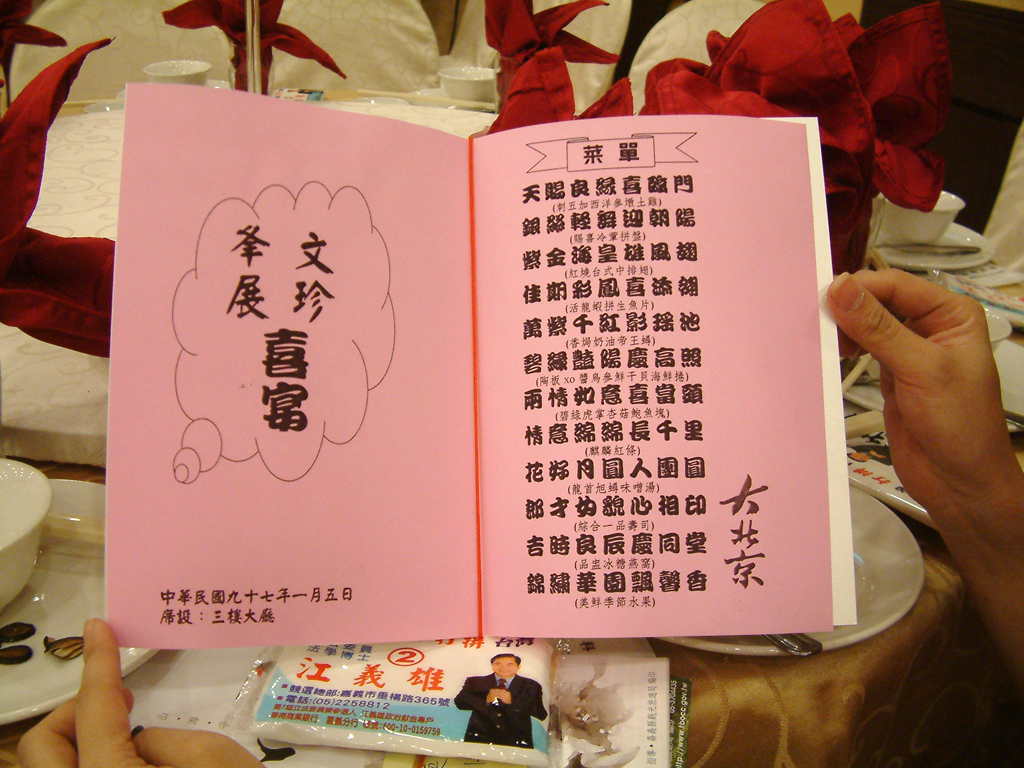 文珍
夆展
喜宴
中華民國九十七年一月五日
席設：三樓大廳
菜單
天賜良緣喜臨門
(刺五加西洋參燉土雞)
銀絲輕舞迎朝陽
(賜喜冷葷拼盤)
紫金海皇雄風翅
(紅燒台式中排翅)
佳期彩鳳喜添翅
(活龍蝦拼生魚片)
萬紫千紅影瑤池
(香焗奶油帝王蟳)
碧綠豔陽慶高照
(陶板xo醬烏參鮮干貝海鮮捲)
兩情如意喜當頭
(碧綠虎掌杏菇鮑魚塊)
情意綿綿長千里
(麒麟紅條)
花好月圓人團圓
(龍首旭蟳味噌湯)
郎才女貌心相印
(綜合一品壽司)
吉時良辰慶同堂
(品盅冰糖燕窩)
錦繡華園飄馨香
(美鮮季節水果)
大北京
法學博士
②
江義雄
競選總部:嘉義市垂楊路365號
電話:(05)2258812
http://www.tbocc.gov.tw